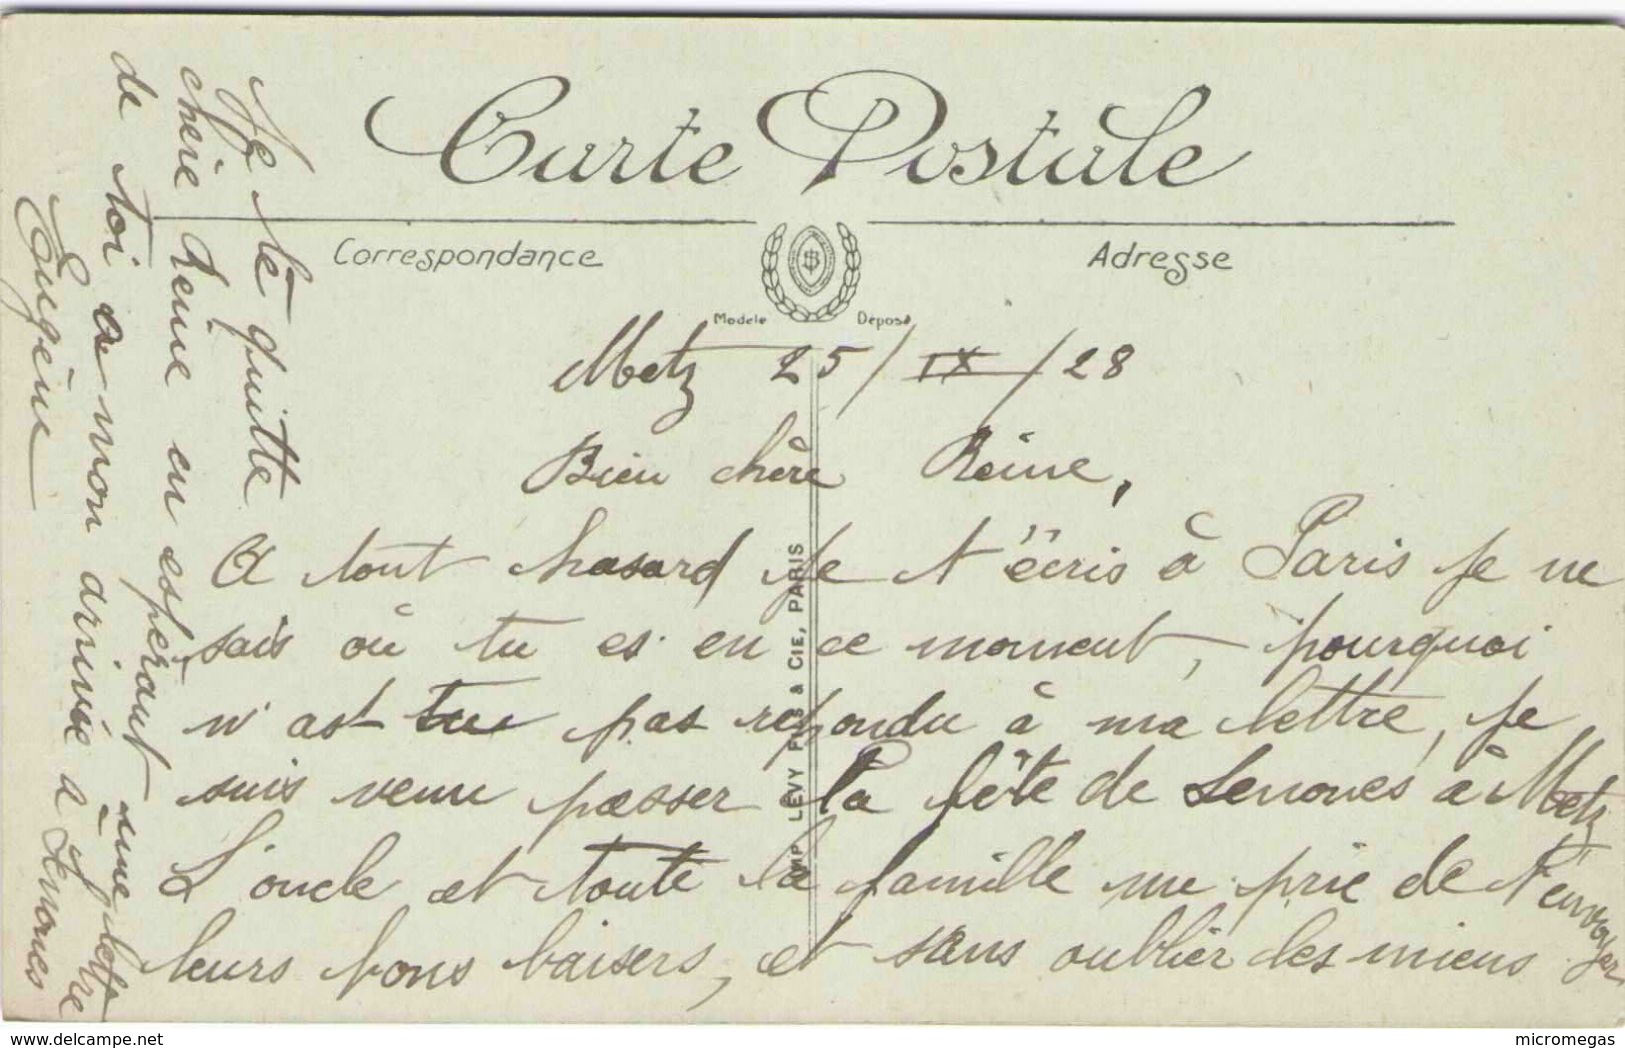 Carte Postale
Correspondance
Adresse
Modèle Déposé
IMP LEVY FILS & CIE, PARIS
Metz 25/IX/28
Bien chère Reine,
A tout hasard je t'écris à Paris je ne
sais où tu es en ce moment, pourquoi
n'as-tu pas repondu à ma lettre, je
suis venu passer la fête de Lenoncs à Metz
L'oncle et toute la famille me prie de t'envoyer
leurs bons baisers, et sans oublier les miens
Je te quitte
chère Reine en espérant une lettre
de toi a mon arrivée a Lenoncs
Eugène
www.delcampe.net
micromegas